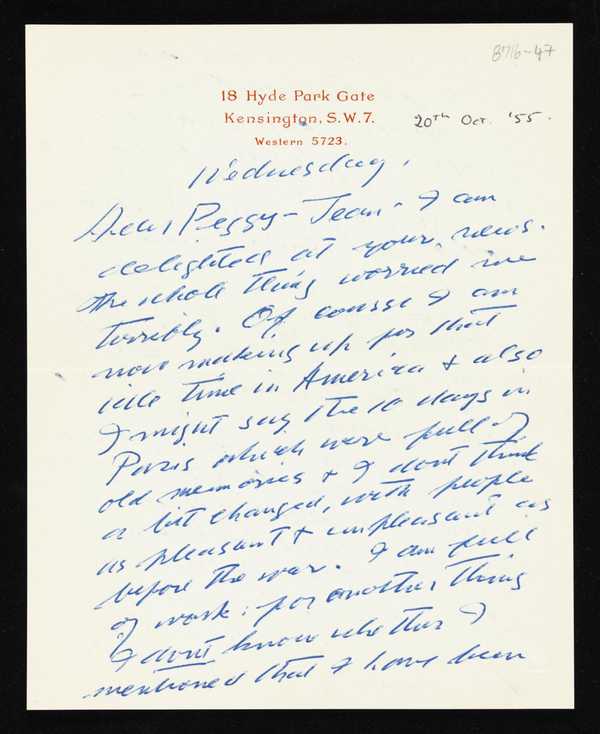 8716-47
18 Hyde Park Gate
Kensington, S.W.7.
Western 5723.
20th Oct. '55.
Wednesday.
Dear Peggy-Jean - I am
delighted at your news.
the whole thing worried me
terribly. Of course I am
now making up for that
idle time in America & also
I might say the 10 days in
Paris which were full of
old memories & I dont think
a bit changed, with people
as pleasant & unpleasant as
before the war. I am full
of work: for another thing
I dont know whether I
mentioned that I have been